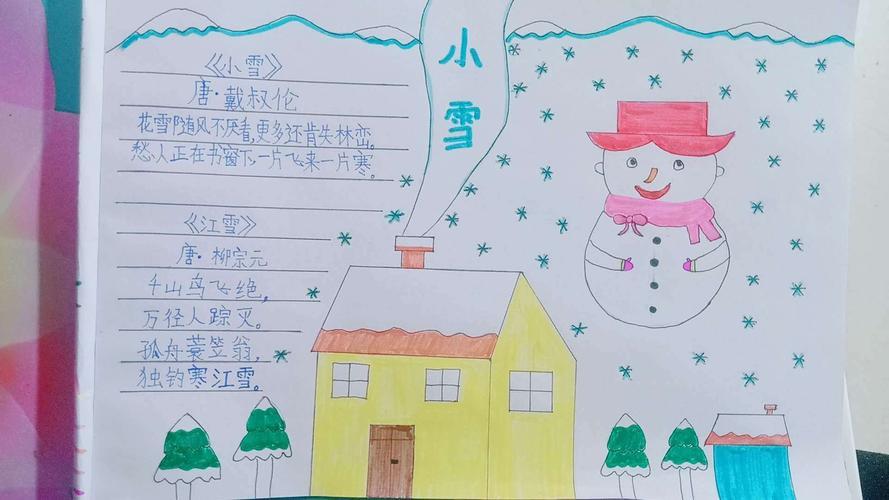 《小雪》
唐·戴叔伦
花雪随风不厌看,更多还肯失林峦。
愁人正在书窗下,一片飞来一片寒。
《江雪》
唐·柳宗元
千山鸟飞绝,
万径人踪灭。
孤舟蓑笠翁,
独钓寒江雪。
小
雪